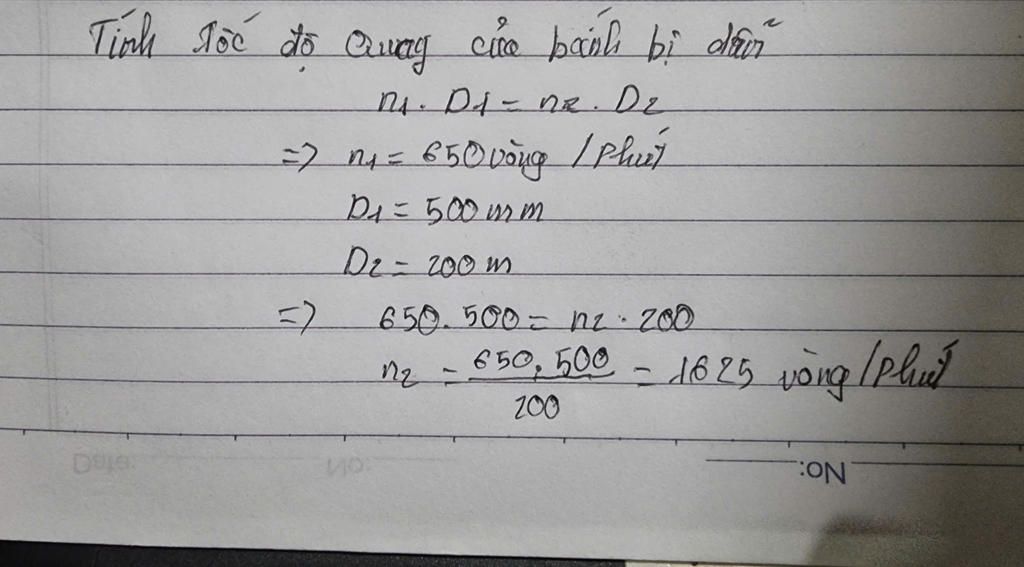 Tính tốc độ quay của bánh bị dẫn
n1 . D1 = n2 . D2
=> n1 = 650 vòng / Phút
D1 = 500 mm
D2 = 200 m
=> 650 . 500 = n2 . 200
n2 = 650 . 500 / 200 = 1625 vòng / Phút
Date: No:
No: